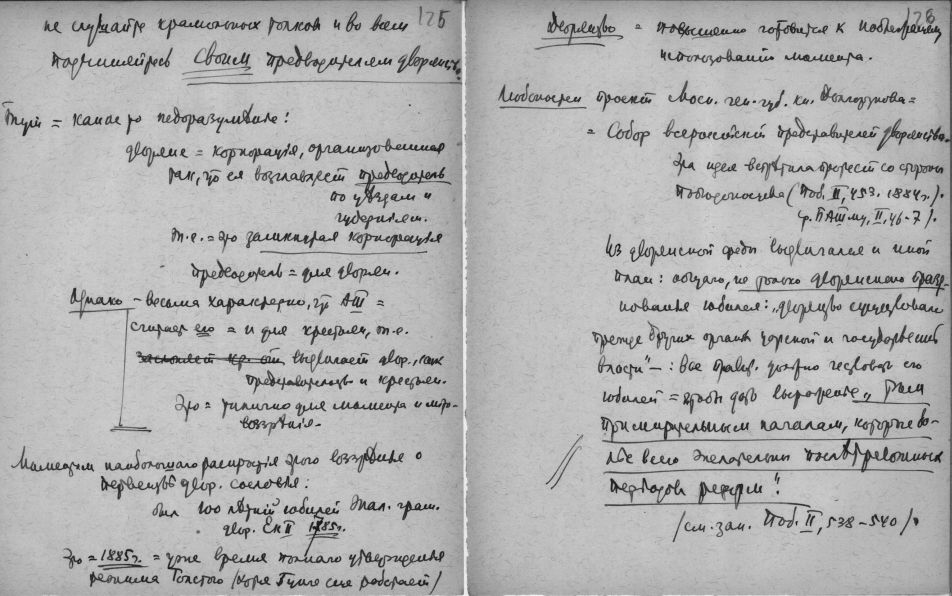 125
не слушайте крамольных толков и во всем
подчиняйтесь своим предводителям дворянства.
Тут = какое то недоразумѣние:
дворяне = корпорацiя, организованная
так, что ея возглавляет предводитель
по уѣздам и
губернiям.
т.е. = это замкнутая корпорацiя
предводитель = для дворян.
Однако – весьма характерно, что АIII =
считает его = и для крестьян, т.е.
выдвигает двор., как
предводительство и крестьян.
Это = типично для момента и миро-
воззрѣнiя.
Моментом наибольшаго расцвета этого воззрѣнiя о
первенствѣ двор. сословiя:
был 100 лѣтнiй юбилей Жал. грам.
двор. Ек II 1785г.
Это = 1885г. = уже время полнаго утвержденiя
режима Толстого (хотя Бунге еще работает)
126
Дворянство = повышенно готовится к
использованiю момента.
Любопытен проект Моск. ген.-губ. кн. Долгорукова =
= Собор всероссiйскiй представителей дворянства.
Эта идея встрѣтила протест со стороны
Победоносцева (Поб. II, 453. 1884г.).
ср. П АIIIму, II, 46-7).
Из дворянской среды выдвигался и иной
план: общаго, не только дворянскаго празд-
нованiя юбилея: „дворянство существовало
прежде других органов царской и государственной
власти" – : все должно чествовать его
юбилей = чтобы дать выраженiе „тѣм
примирительным началам, которые бо-
лѣе всего желательны послѣ тревожных
перiодов реформ".
(см. зап. Поб. II, 538-540).